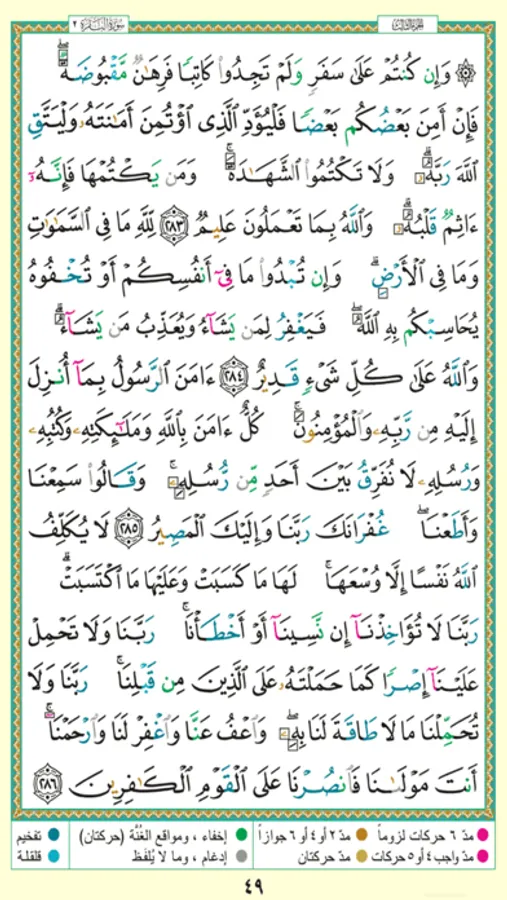 الجزء الثالث
سورة البقرة ٢
۞ وَإِن كُنتُمْ عَلَىٰ سَفَرٍ وَلَمْ تَجِدُوا۟ كَاتِبًا فَرِهَـٰنٌ مَّقْبُوضَةٌ ۖ
فَإِنْ أَمِنَ بَعْضُكُم بَعْضًا فَلْيُؤَدِّ ٱلَّذِى ٱؤْتُمِنَ أَمَـٰنَتَهُۥ وَلْيَتَّقِ
ٱللَّهَ رَبَّهُۥ ۗ وَلَا تَكْتُمُوا۟ ٱلشَّهَـٰدَةَ ۚ وَمَن يَكْتُمْهَا فَإِنَّهُۥٓ
ءَاثِمٌ قَلْبُهُۥ ۗ وَٱللَّهُ بِمَا تَعْمَلُونَ عَلِيمٌ ٢٨٣ لِّلَّهِ مَا فِى ٱلسَّمَـٰوَٰتِ
وَمَا فِى ٱلْأَرْضِ ۗ وَإِن تُبْدُوا۟ مَا فِىٓ أَنفُسِكُمْ أَوْ تُخْفُوهُ
يُحَاسِبْكُم بِهِ ٱللَّهُ ۖ فَيَغْفِرُ لِمَن يَشَآءُ وَيُعَذِّبُ مَن يَشَآءُ ۗ
وَٱللَّهُ عَلَىٰ كُلِّ شَىْءٍ قَدِيرٌ ٢٨٤ ءَامَنَ ٱلرَّسُولُ بِمَآ أُنزِلَ
إِلَيْهِ مِن رَّبِّهِۦ وَٱلْمُؤْمِنُونَ ۚ كُلٌّ ءَامَنَ بِٱللَّهِ وَمَلَـٰٓئِكَتِهِۦ وَكُتُبِهِۦ
وَرُسُلِهِۦ لَا نُفَرِّقُ بَيْنَ أَحَدٍ مِّن رُّسُلِهِۦ ۚ وَقَالُوا۟ سَمِعْنَا
وَأَطَعْنَا ۖ غُفْرَانَكَ رَبَّنَا وَإِلَيْكَ ٱلْمَصِيرُ ٢٨٥ لَا يُكَلِّفُ
ٱللَّهُ نَفْسًا إِلَّا وُسْعَهَا ۚ لَهَا مَا كَسَبَتْ وَعَلَيْهَا مَا ٱكْتَسَبَتْ ۗ
رَبَّنَا لَا تُؤَاخِذْنَآ إِن نَّسِينَآ أَوْ أَخْطَأْنَا ۚ رَبَّنَا وَلَا تَحْمِلْ
عَلَيْنَآ إِصْرًا كَمَا حَمَلْتَهُۥ عَلَى ٱلَّذِينَ مِن قَبْلِنَا ۚ رَبَّنَا وَلَا
تُحَمِّلْنَا مَا لَا طَاقَةَ لَنَا بِهِۦ ۖ وَٱعْفُ عَنَّا وَٱغْفِرْ لَنَا وَٱرْحَمْنَآ ۚ
أَنتَ مَوْلَىٰنَا فَٱنصُرْنَا عَلَى ٱلْقَوْمِ ٱلْكَـٰفِرِينَ ٢٨٦
مدّ ٦ حركات لزوماً
مدّ ٢ أو ٤ أو ٦ جوازاً
إخفاء ، ومواقع الغُنَّة (حركتان)
تفخيم
مدّ واجب ٤ أو ٥ حركات
مدّ حركتان
إدغام ، وما لا يُلفَظ
قلقلة
٤٩